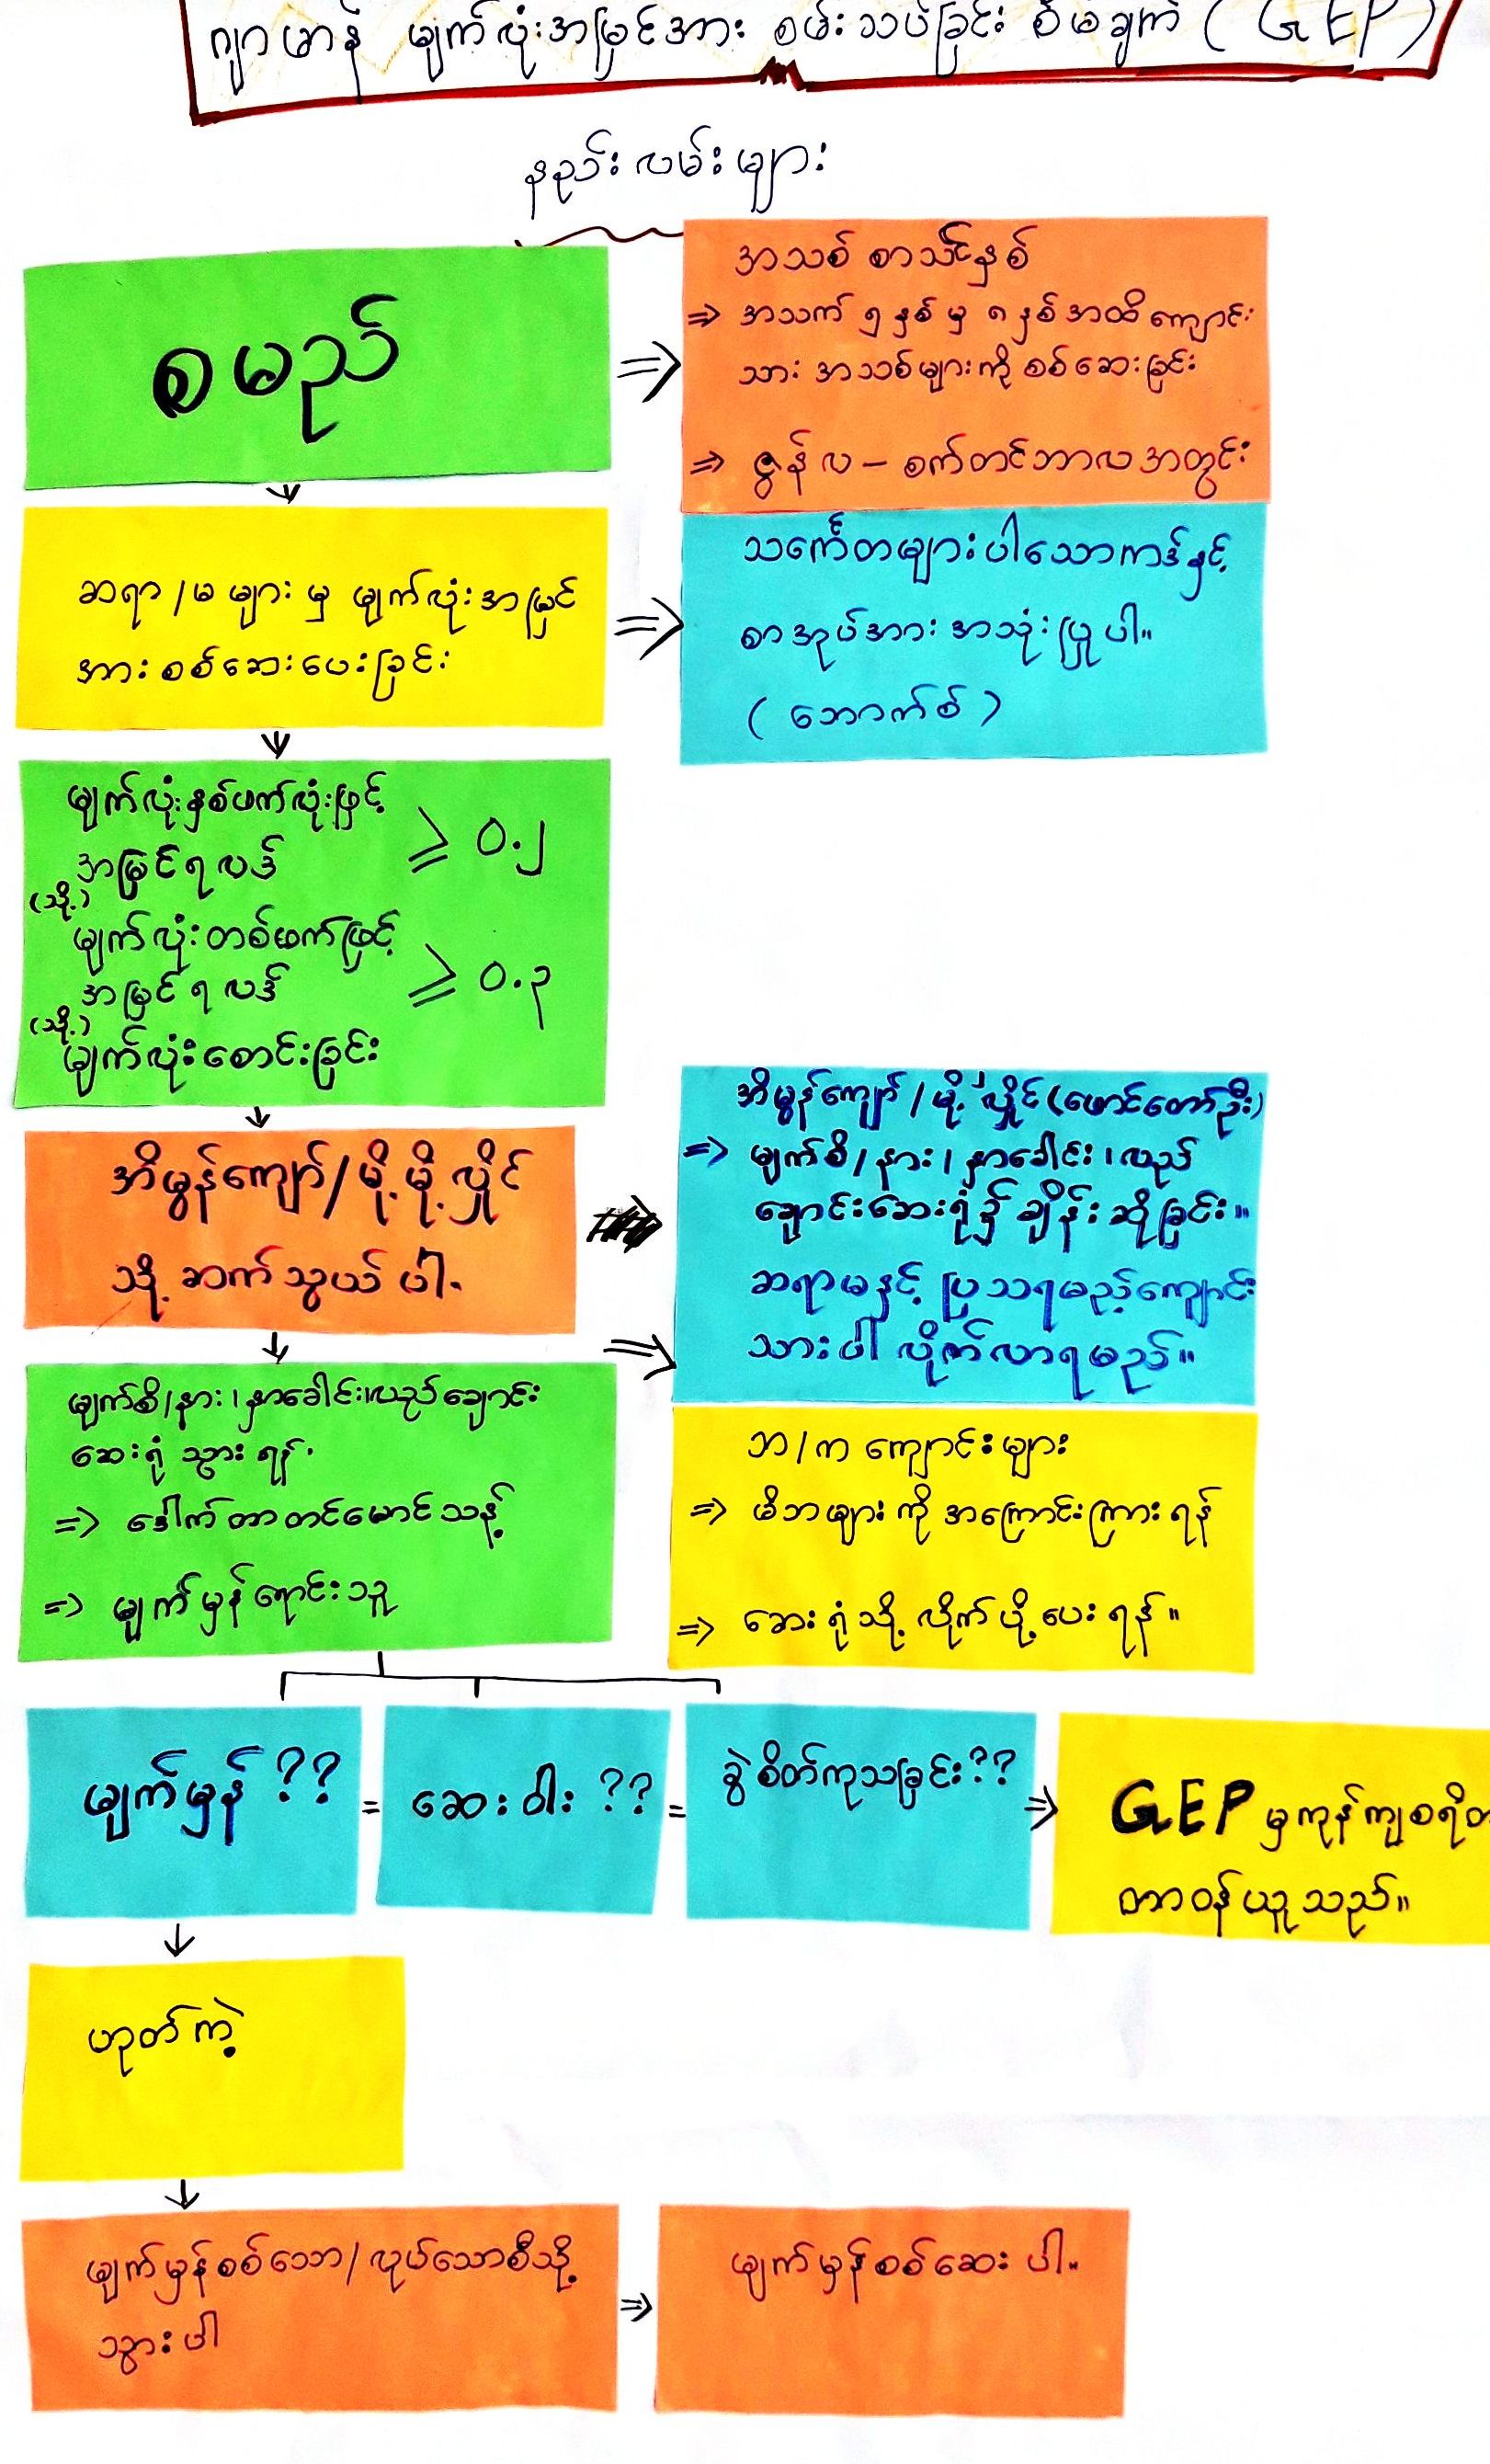 ဂျာမာန် မျက်လုံးအမြင်အား စမ်းသပ်ခြင်း စီမံချက် (GEP)
နည်းလမ်းများ
စမည်
⇒
အသစ် စာသင်နှစ်
⇒ အသက် ၅ နှစ် မှ ၈ နှစ် အထိ ကျောင်း
သား အသစ်များကို စစ်ဆေးခြင်း
⇒ ဇွန်လ – စက်တင်ဘာလ အတွင်း
ဆရာ/မ များ မှ မျက်လုံးအမြင်
အား စစ်ဆေးပေးခြင်း
⇒
သင်္ကေတများပါသောကဒ်နှင့်
စာအုပ်အား အသုံးပြုပါ။
(ဘောက်စ်)
မျက်လုံးနှစ်ဖက်လုံးဖြင့်
အမြင်ရလဒ် ⩾ ၀.၂
(သို့)
မျက်လုံးတစ်ဖက်ဖြင့်
အမြင်ရလဒ် ⩾ ၀.၃
(သို့)
မျက်လုံးစောင်းခြင်း
အိမွန်ကျော်/မို့မို့လှိုင်
သို့ ဆက်သွယ်ပါ.
အိမွန်ကျော်/မို့"လှိုင်(ဖောင်တော်ဦး)
⇒ မျက်စိ/နား၊နှာခေါင်း၊လည်
ချောင်းဆေးရုံ၌ ချိန်းဆိုခြင်း။
ဆရာမနှင့် ပြသရမည့်ကျောင်း
သားပါ လိုက်လာရမည်။
⇒
မျက်စိ/နား၊နှာခေါင်း၊လည်ချောင်း
ဆေးရုံ သွားရန်.
⇒ ဒေါက်တာတင်မောင်သန့်
⇒ မျက်မှန်ရောင်းသူ
ဘ/က ကျောင်းများ
⇒ မိဘများကို အကြောင်းကြားရန်
⇒ ဆေးရုံသို့ လိုက်ပို့ပေးရန်။
မျက်မှန် ?? = ဆေးဝါး ?? = ခွဲစိတ်ကုသခြင်း ?? ⇒ GEP မှ ကုန်ကျစရိတ်
တာဝန်ယူသည်။
ဟုတ်ကဲ့
မျက်မှန်စစ်သော/လုပ်သောစီသို့
သွားပါ
⇒
မျက်မှန်စစ်ဆေးပါ။